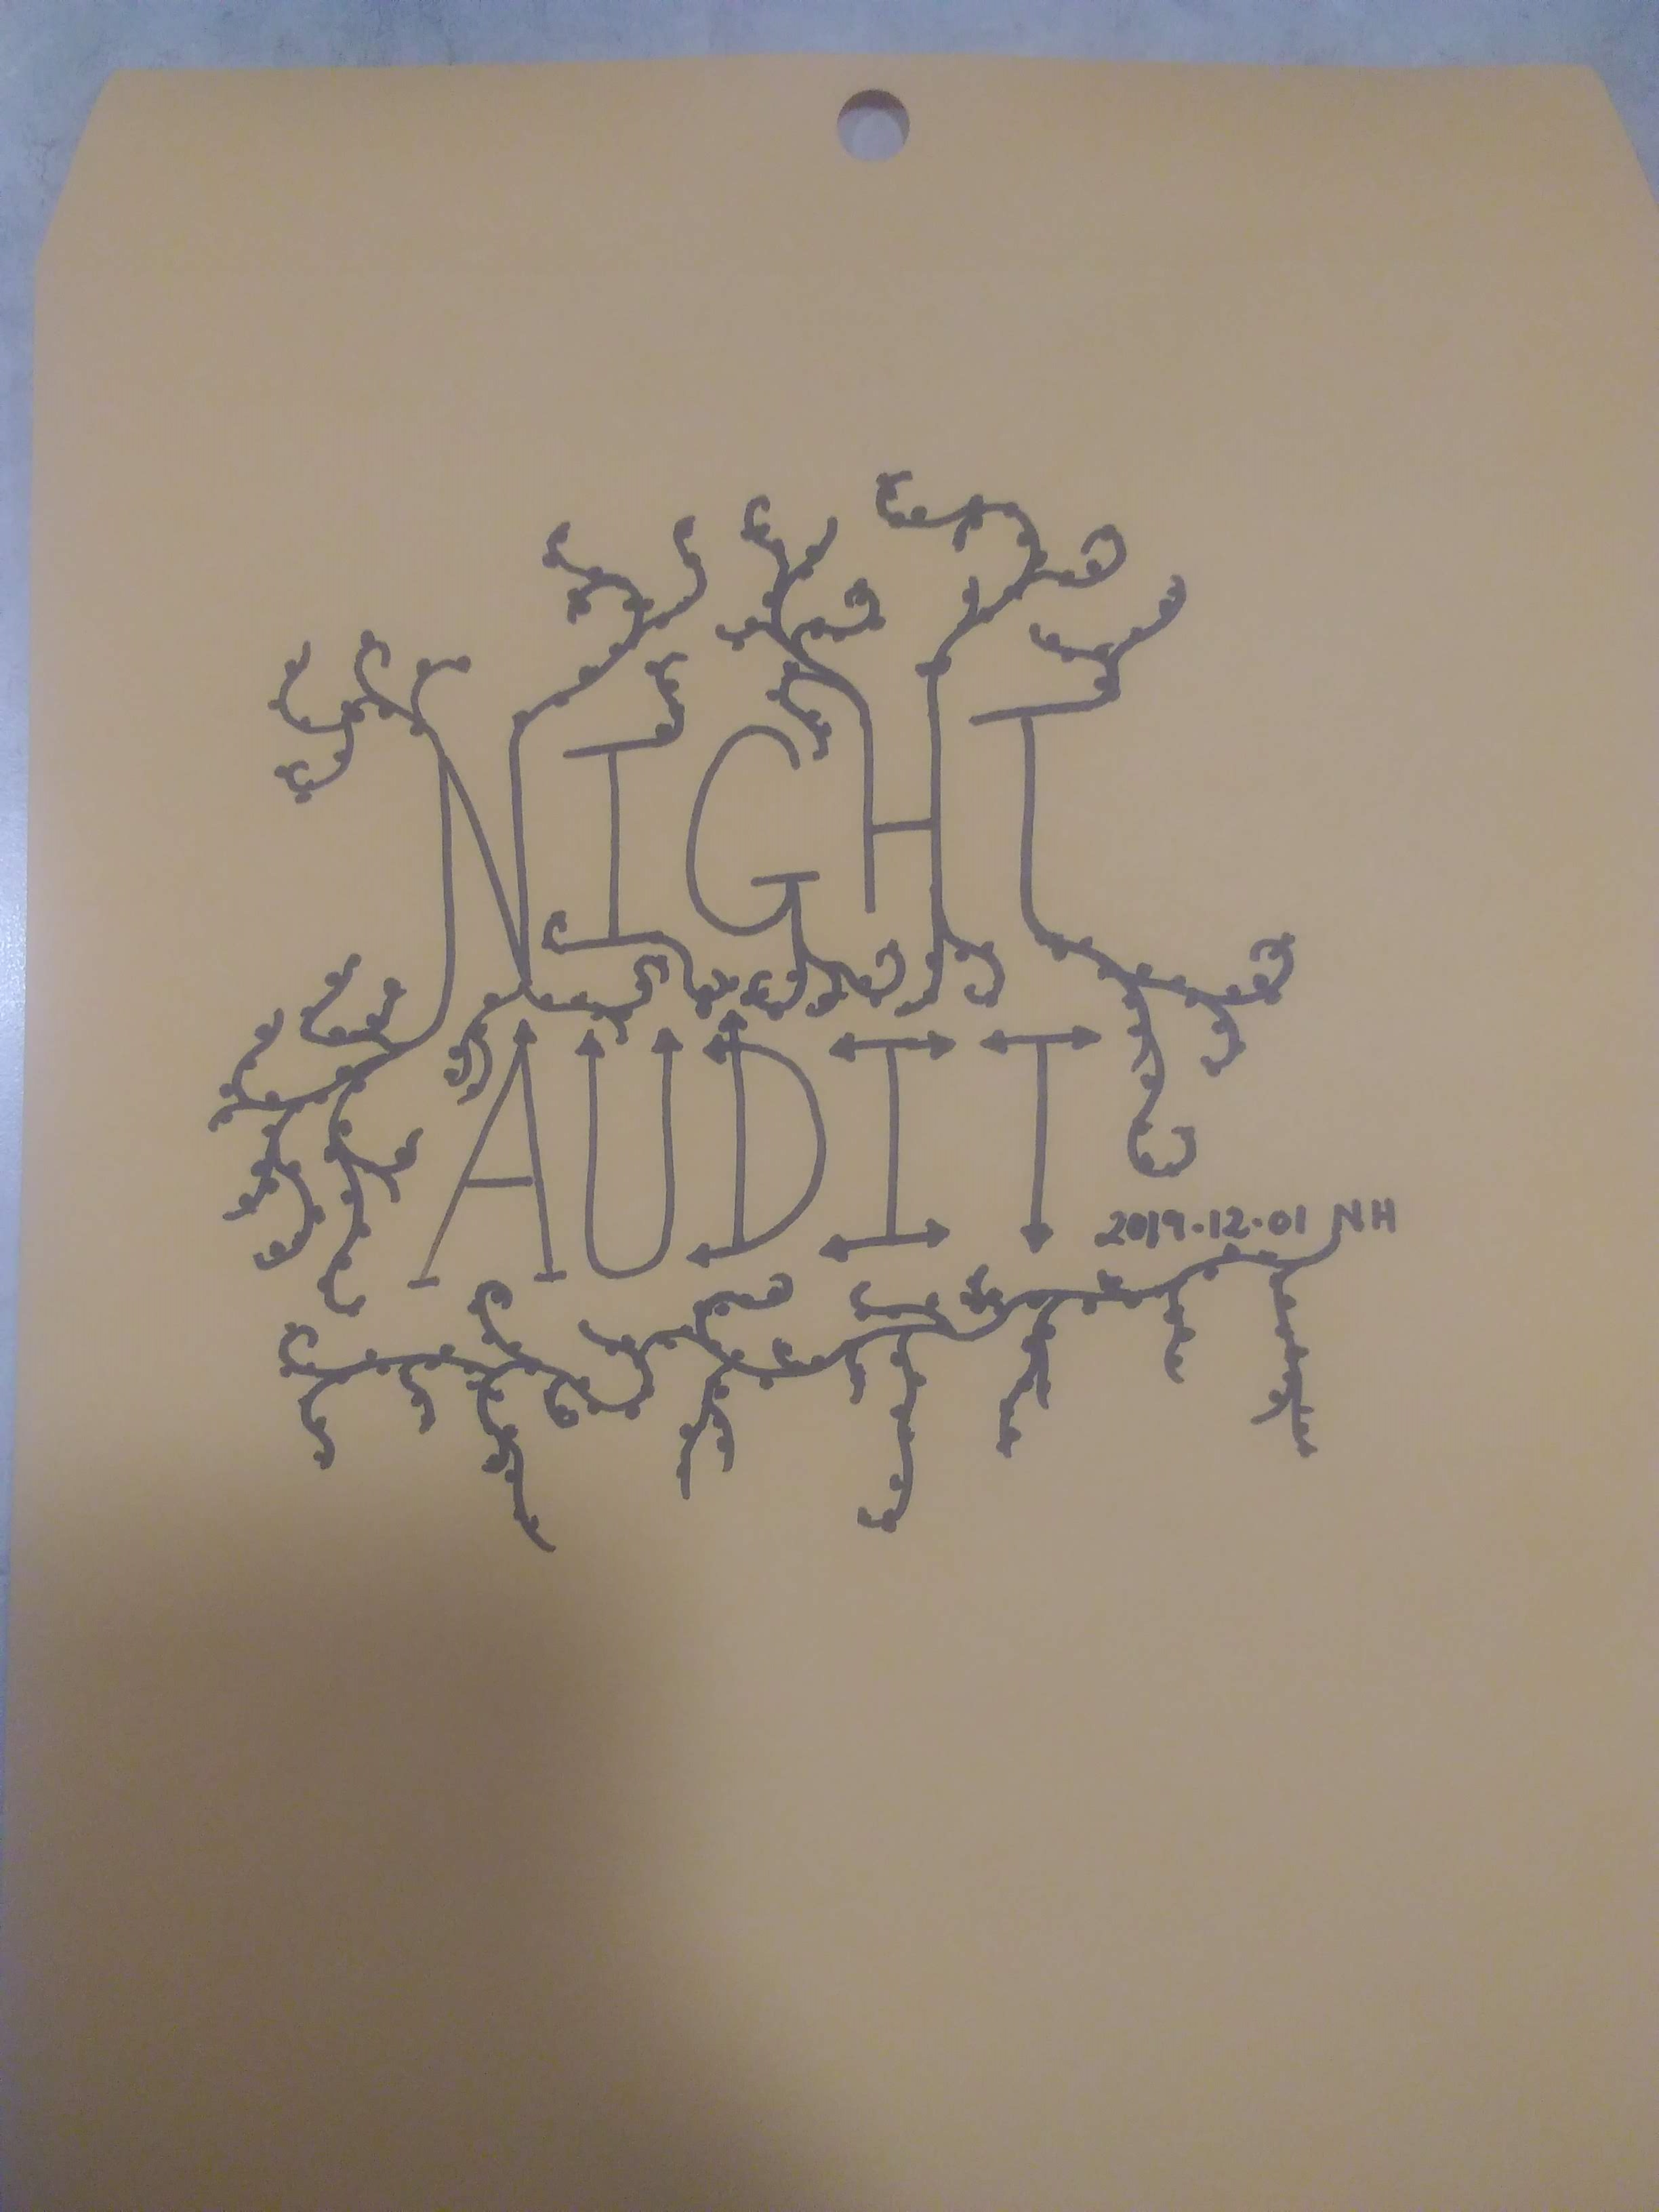 NIGHT
AUDIT
2019.12.01 NH